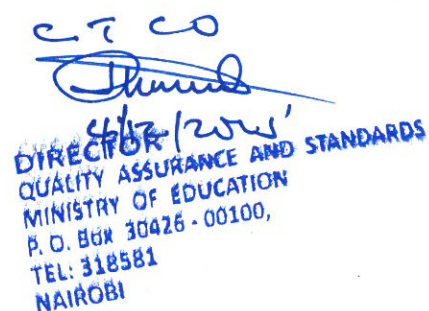 C T CO
DIRECTOR
QUALITY ASSURANCE AND STANDARDS
MINISTRY OF EDUCATION
P. O. Box 30426 - 00100,
TEL: 318581
NAIROBI